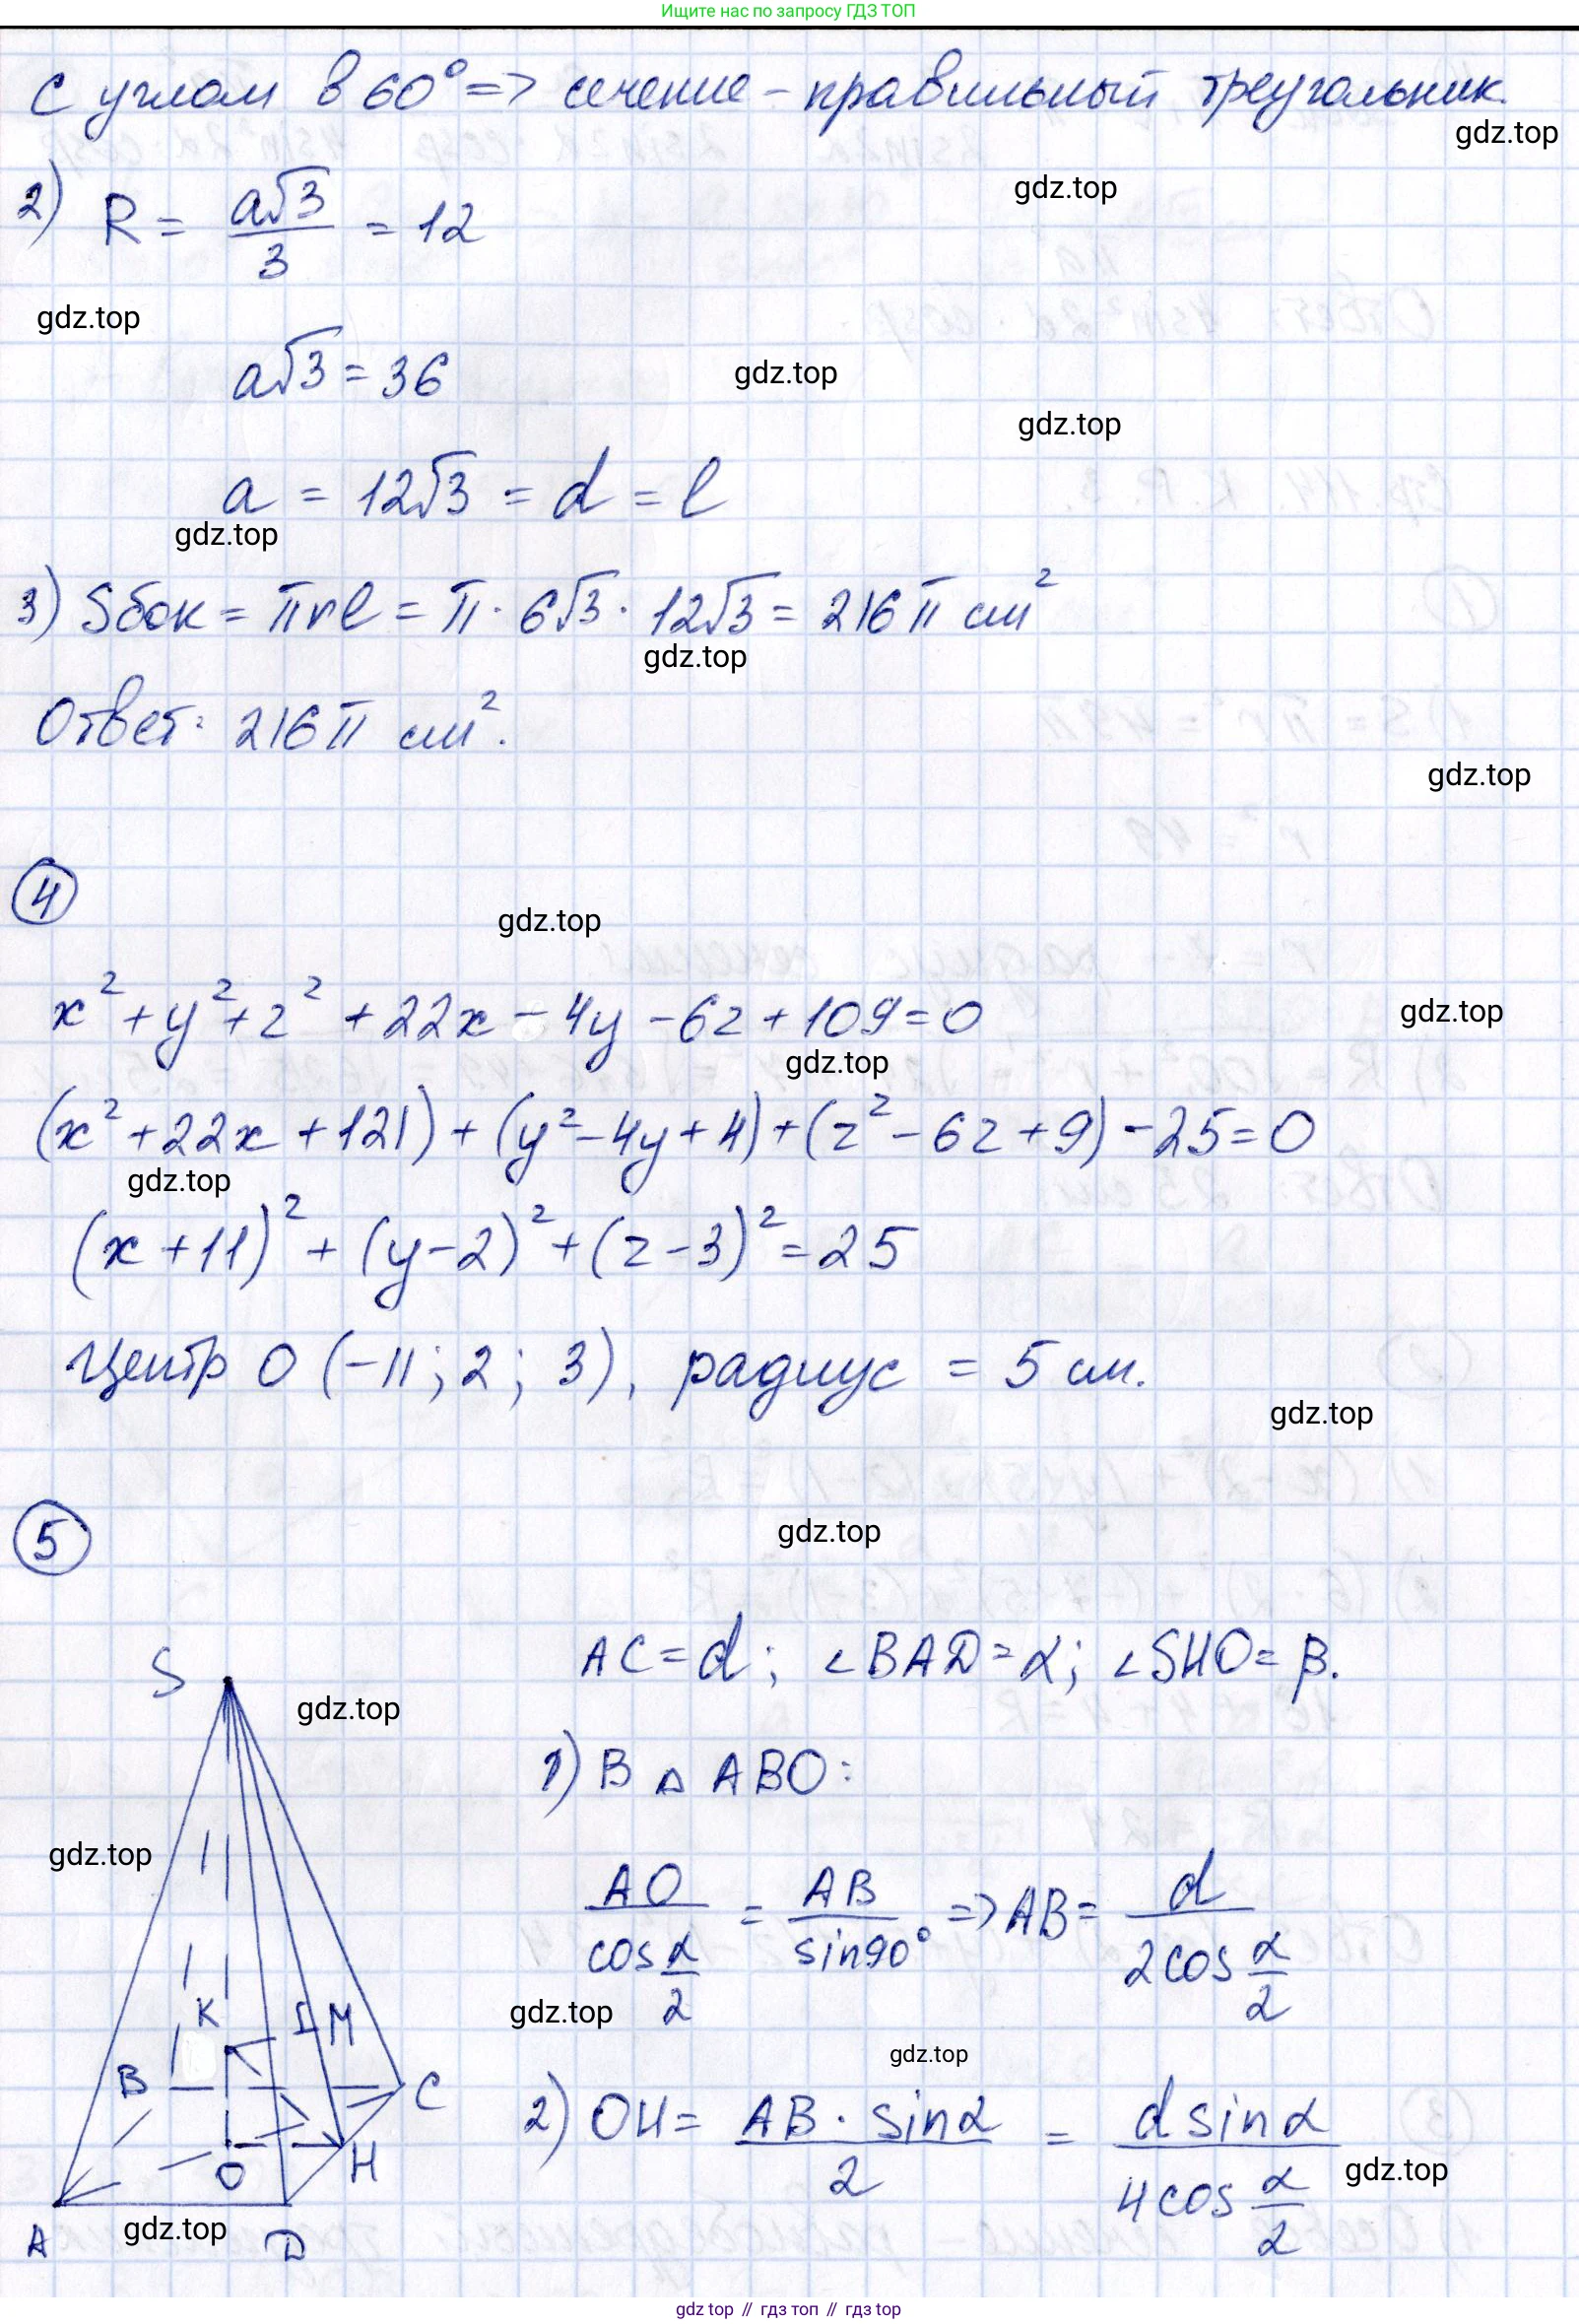 Ищите нас по запросу ГДЗ ТОП
с углом в 60° => сечение - правильный треугольник.
gdz.top
gdz.top
2) R = a√3/3 = 12
gdz.top
a√3 = 36
gdz.top
gdz.top
a = 12√3 = d = l
gdz.top
3) Sбок = πrl = π · 6√3 · 12√3 = 216π см²
gdz.top
Ответ: 216π см².
gdz.top
4
gdz.top
x² + y² + z² + 22x - 4y - 6z + 109 = 0
gdz.top
gdz.top
(x² + 22x + 121) + (y² - 4y + 4) + (z² - 6z + 9) - 25 = 0
gdz.top
(x + 11)² + (y - 2)² + (z - 3)² = 25
Центр O (-11; 2; 3), радиус = 5 см.
gdz.top
5
gdz.top
AC = d; ∠BAD = α; ∠SHO = β.
S
gdz.top
1) В △ ABO:
gdz.top
AO/cos α/2 = AB/sin90° => AB = d/2cos α/2
K
M
gdz.top
gdz.top
B
C
2) OH = AB · sinα/2 = d sinα/4cos α/2
O
H
gdz.top
A
gdz.top
D
gdz top // гдз топ // гдз top